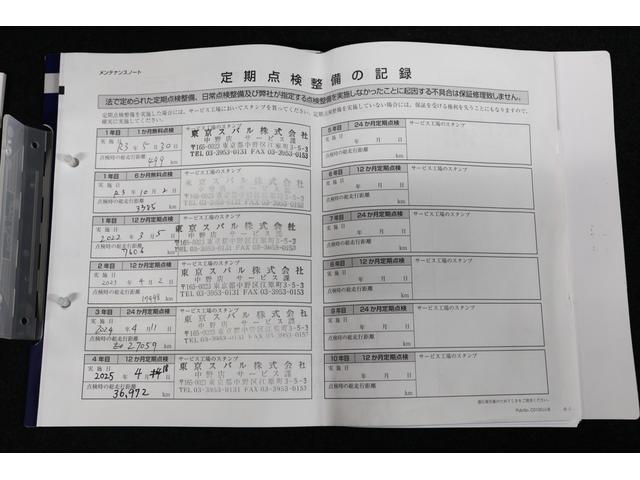 メンテナンスノート
定期点検整備の記録
法で定められた定期点検整備、日常点検整備及び弊社が指定する点検整備を実施しなかったことに起因する不具合は保証修理致しません。
定期点検整備を実施した場合には、サービス工場においてスタンプを貰ってください。 定期点検整備を実施していない場合には、保証を受ける権利を失うことにもなりますので、
1年目 1か月無料点検 サービス工場のスタンプ
実施日 R3年5月30日
点検時の総走行距離 499 km
東京スバル株式会社
中野店 サービス課
〒165-0023 東京都中野区江原町3-5-3
TEL 03-3953-0131 FAX 03-3953-0153
1年目 6か月無料点検 サービス工場のスタンプ
実施日 R3年10月2日
点検時の総走行距離 3385 km
東京スバル株式会社
中野店 サービス課
〒165-0023 東京都中野区江原町3-5-3
TEL 03-3953-0131 FAX 03-3953-0153
1年目 12か月定期点検 サービス工場のスタンプ
実施日 2022年3月5日
点検時の総走行距離 7606 km
東京スバル株式会社
中野店 サービス課
〒165-0023 東京都中野区江原町3-5-3
TEL 03-3953-0131 FAX 03-3953-0153
2年目 12か月定期点検 サービス工場のスタンプ
実施日 2023年4月2日
点検時の総走行距離 19498 km
東京スバル株式会社
中野店 サービス課
〒165-0023 東京都中野区江原町3-5-3
TEL 03-3953-0131 FAX 03-3953-0153
3年目 24か月定期点検 サービス工場のスタンプ
実施日 2024年4月11日
点検時の総走行距離 27059 km
東京スバル株式会社
中野店 サービス課
〒165-0023 東京都中野区江原町3-5-3
TEL 03-3953-0131 FAX 03-3953-0153
4年目 12か月定期点検 サービス工場のスタンプ
実施日 2025年4月 日
点検時の総走行距離 36,972 km
東京スバル株式会社
中野店 サービス課
〒165-0023 東京都中野区江原町3-5-3
TEL 03-3953-0131 FAX 03-3953-0153
5年目 24か月定期点検 サービス工場のスタンプ
実施日 年 月 日
点検時の総走行距離 km
6年目 12か月定期点検 サービス工場のスタンプ
実施日 年 月 日
点検時の総走行距離 km
7年目 24か月定期点検 サービス工場のスタンプ
実施日 年 月 日
点検時の総走行距離 km
8年目 12か月定期点検 サービス工場のスタンプ
実施日 年 月 日
点検時の総走行距離 km
9年目 24か月定期点検 サービス工場のスタンプ
実施日 年 月 日
点検時の総走行距離 km
10年目 12か月定期点検 サービス工場のスタンプ
実施日 年 月 日
点検時の総走行距離 km